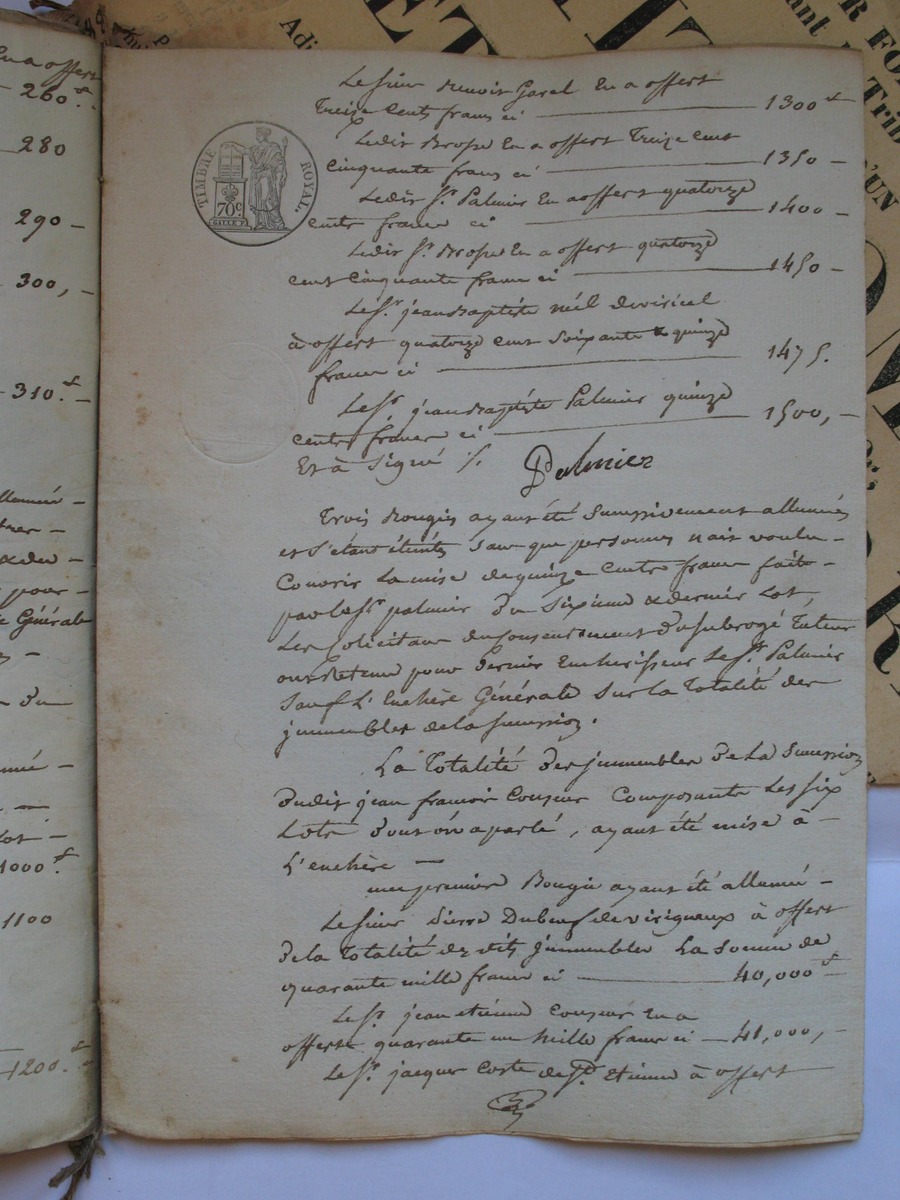 En a offert
260
280
290 –
300, –
310.f –
pour –
Générale
1000.f
1100
1200.f
Adj
TIMBRE ROYAL.
70c.
Le sieur Benoit Garel En a offert
Treize Cents francs ci — 1300f
Ledit Brosse En a offert Treize Cent
Cinquante francs ci — 1350 –
Ledit Sr. Palmier En a offert quatorze
Cents francs ci — 1400 –
Ledit Sr. Brosse En a offert quatorze
Cent Cinquante francs ci — 1450 –
Le Sr. jean Baptiste
à offert quatorze Cent Soixante & quinze
francs ci — 1475.
Le Sr. jean Baptiste Palmier quinze
Cents francs ci — 1500, –
Et à Signé ./. Palmier
Trois Bougies ayant été Successivement allumées
et S'étant éteintes Sans que personnes n'ait voulu –
Couvrir La mise de quinze Cents francs faite –
par le Sr. palmier Du Sixieme & dernier Lot,
Les Colicitans du Consentement du Subrogé Tuteur
ont Retenu pour dernier Encherisseur le Sr. Palmier
Sauf L'Enchère Générale Sur la Totalité des
jmmeubles de la Succession.
La Totalité des jmmeubles De La Succession
Dudit jean francois Couzeur Composants Les Six
Lots Dont on a parlé, ayant été mise à –
L'enchère —
une premier Bougie ayant été allumée –
Le Sieur Pierre Dubœuf de virigneux à offert
De la Totalité des dits jmmeubles La Somme de
quarante mille francs ci — 40,000f
Le Sr. jean etienne Couzeur En a
offerts quarante un Mille francs ci — 41,000, –
Le Sr. jacques Coste de St. Etienne à offert